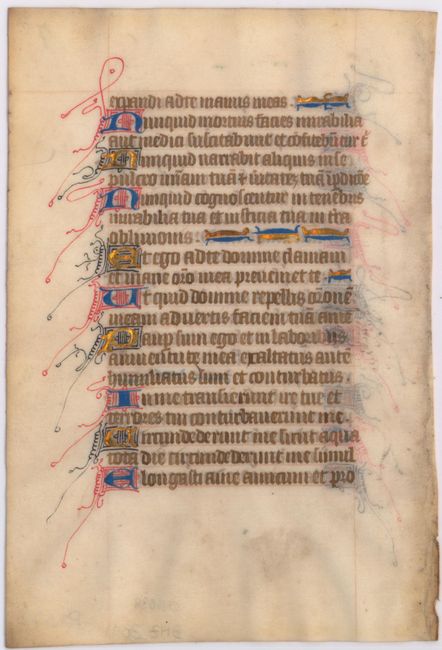 expandi ad te manus meas.
Nunquid mortuis facies mirabilia
aut medici suscitabunt et cōfitebūtur t̄
Nunquid narrabit aliquis in se
pulcro mīam tuā et ūitatē tuā ī pdicōe
Nunquid cognoscentur in tenebris
mirabilia tua et iusticia tua in t̄ra
oblivionis:
Et ego ad te domine clamavi
et mane orō mea preveniet te.
Ut quid domine repellis orōnē
meam advertis faciem tuā a me
Paup sum ego et in laboribus
a iuventute mea exaltatus autē
humiliatus sum et conturbatus.
In me transierunt ire tue et
terrores tui conturbaverunt me.
Circundederunt me sicut aqua
tota die circundederunt me simul
Elongasti a me amicum et pro